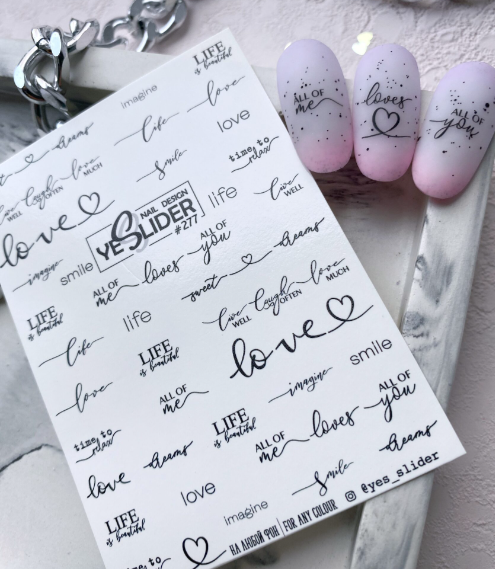 LIFE
is beautiful
imagine
love
dreams
life
love
live
WELL
laugh
OFTEN
love
MUCH
smile
time to
relax
love
NAIL DESIGN
YESSLIDER
#277
life
live
WELL
imagine
smile
ALL OF
me
loves
ALL OF
you
sweet
dreams
LIFE
is beautiful
life
live
WELL
laugh
OFTEN
love
MUCH
life
LIFE
is beautiful
love
smile
love
ALL OF
me
imagine
time to
relax
LIFE
is beautiful
ALL OF
me
loves
ALL OF
you
love
dreams
dreams
LIFE
is beautiful
love
imagine
smile
time to
НА ЛЮБОЙ ФОН | FOR ANY COLOUR
@yes_slider
ALL OF
me
loves
ALL OF
you